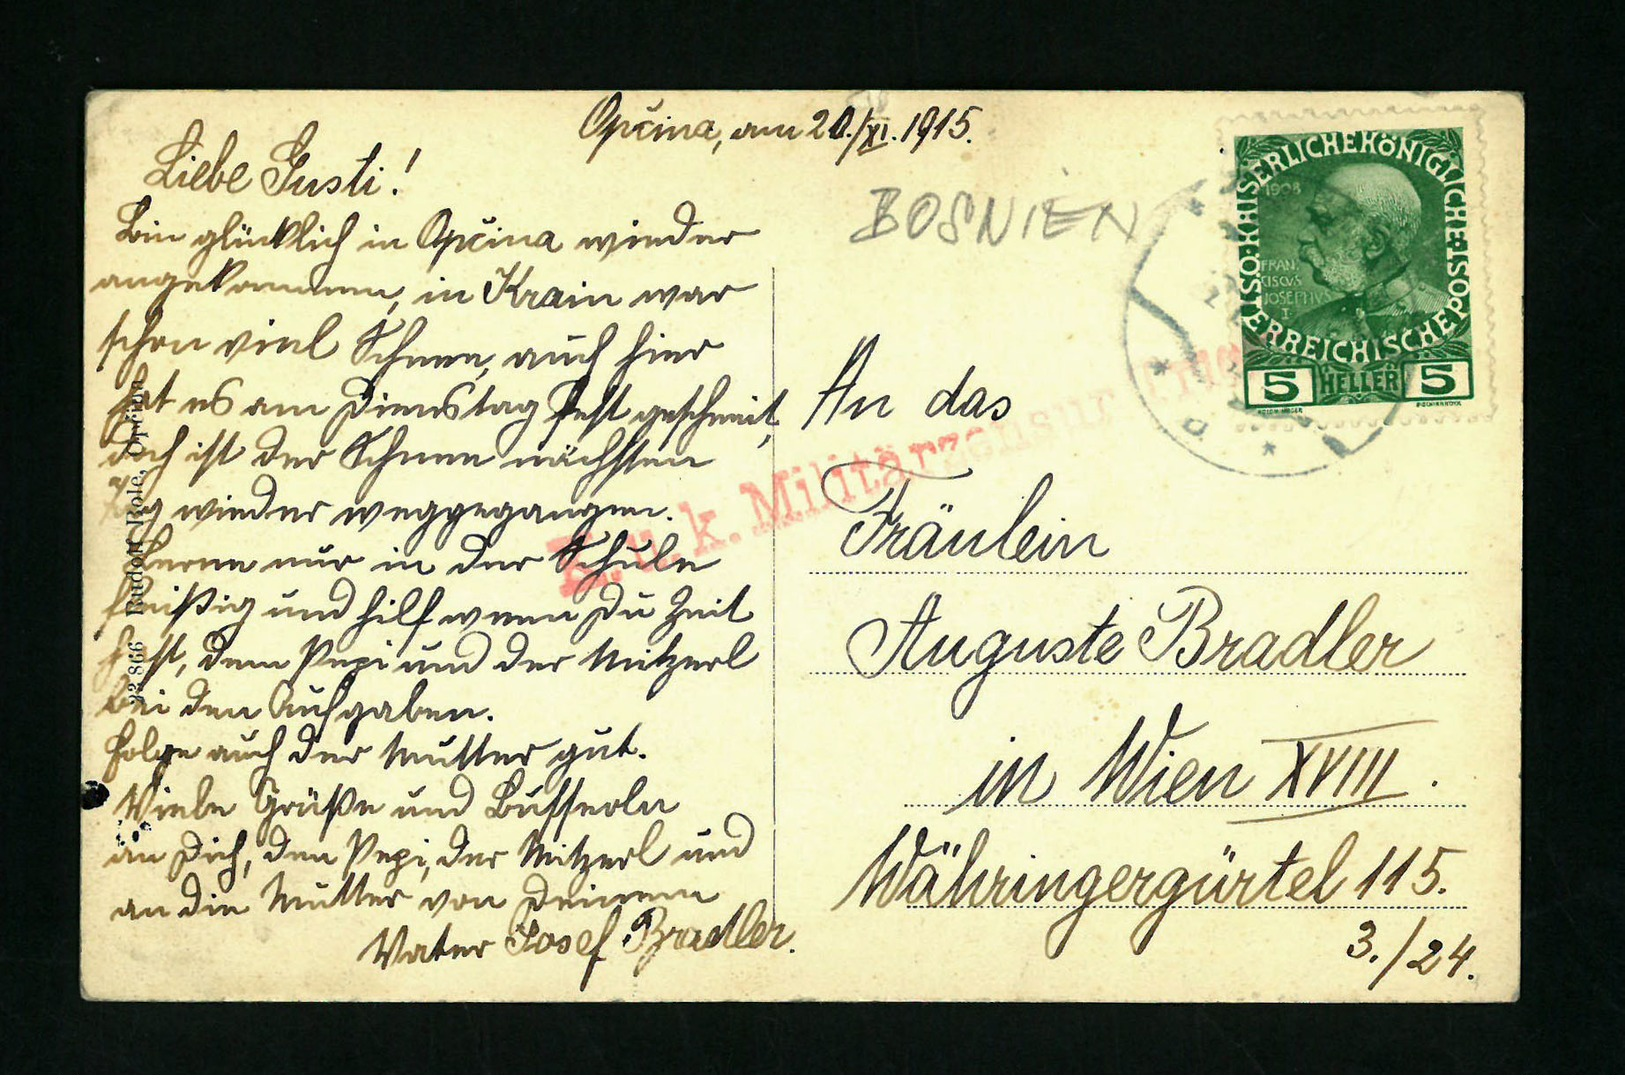 Opčina, am 20./XI. 1915.
Liebe Gusti!
Bin glücklich in Opčina wieder
angekommen, in Krain war
schon viel Schnee, auch hier
hat es am Dienstag fest geschneit,
doch ist der Schnee nächsten
Tag wieder weggegangen.
Lerne nur in der Schule
fleißig und hilf wenn Du Zeit
hast, dem Pepi und der Mitzerl
bei den Aufgaben.
Folge auch der Mutter gut.
Viele Grüße und Busserln
an Dich, den Pepi, der Mitzerl und
an die Mutter von Deinem
Vater Josef Bradler.
22 866 Rudolf Role, Opčina
BOSNIEN
KAISERLICHE KÖNIGLICHE
ÖSTERREICHISCHE POST
1908
FRAN
CISCVS
IOSEPHVS
I
5 HELLER 5
K.u.k. Militärzensur
An das
Fräulein
Auguste Bradler
in Wien XVIII.
Währingergürtel 115.
3./24.